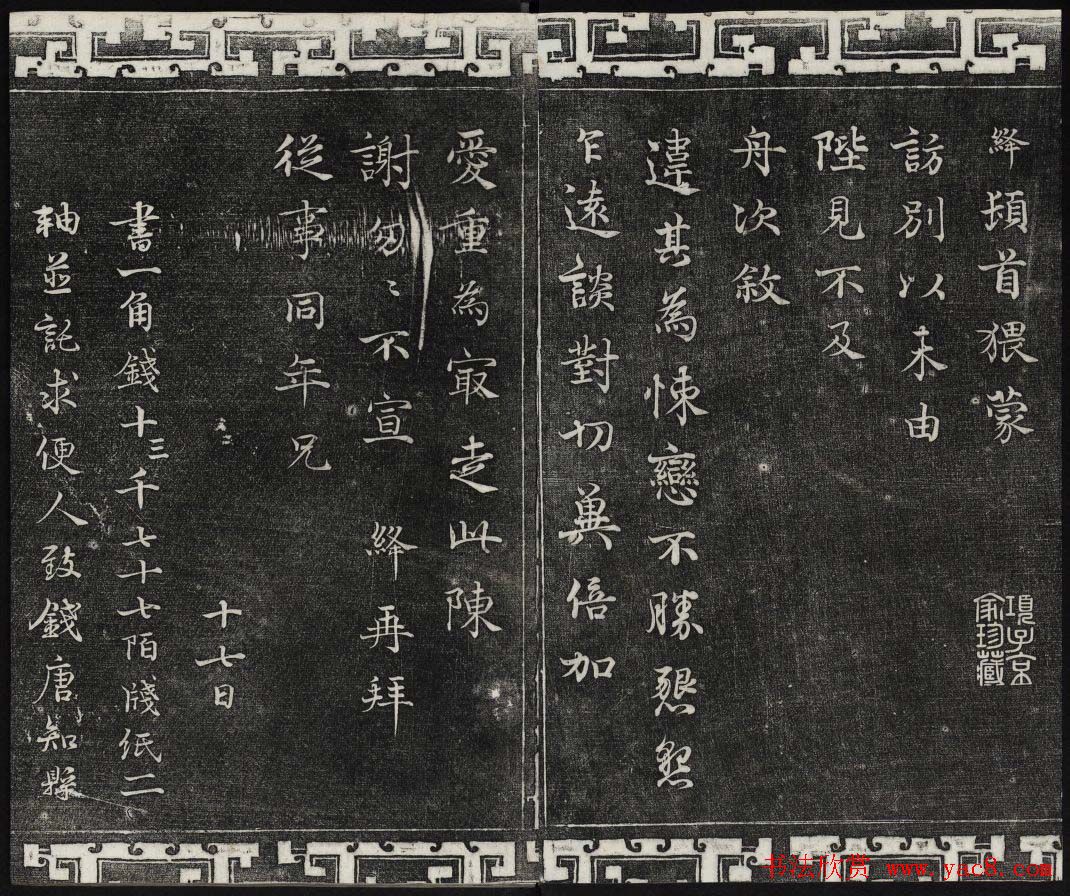 絳頓首猥蒙
訪別以未由
陛見不及
舟次敘
違甚為悚戀不勝懇懇
乍遠談對切冀倍加
愛重為寂走此陳
謝匆〻不宣 絳再拜
從事同年兄
十七日
書一角錢十三千七十七陌牋紙二
軸並託求便人致錢唐知縣
項子京
家珍藏
书法欣赏 www.yac8.com